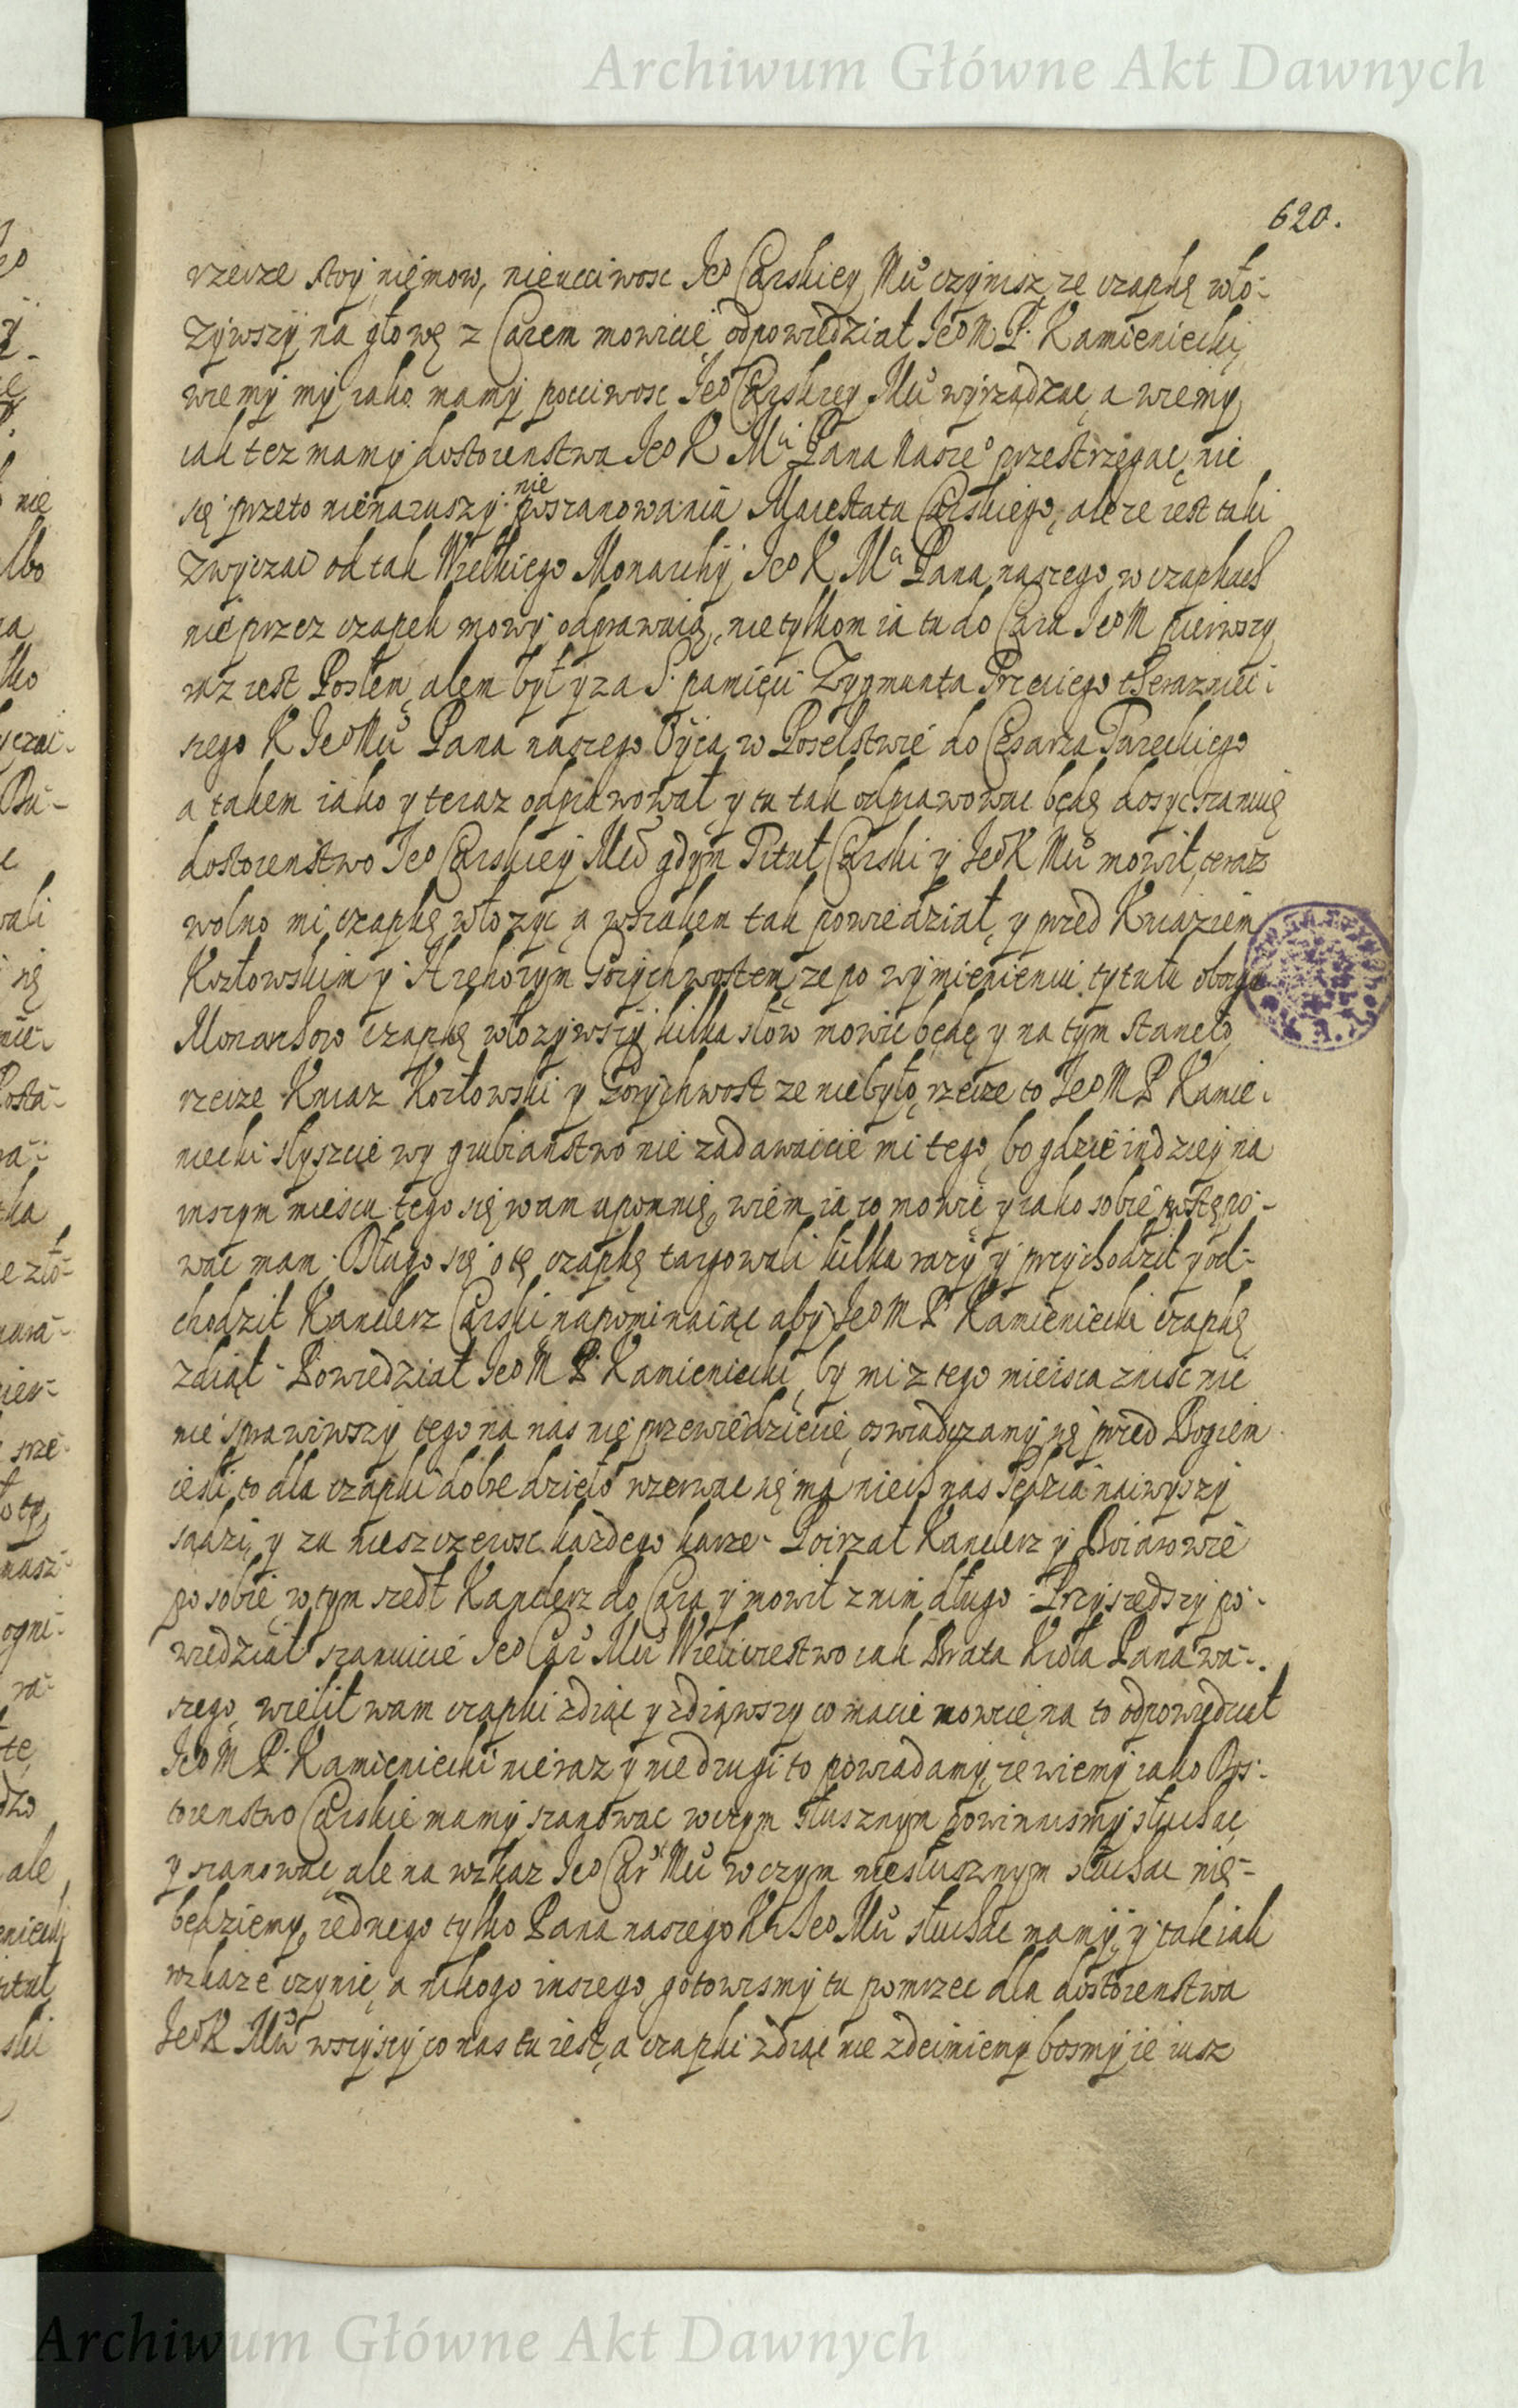 Archiwum Główne Akt Dawnych
620.
rzecze stoy niemow, nieucciwosc Jeo Carskiey Mci czynisz ze czapkę wło-
zywszy na głowę z Carem mowicie odpowiedział JeoM P. Kamieniecki
wiemy my iako mamy pocciwosc Jeo Carskiey Mci wyrządzac a wiemy
iak tez mamy dostoienstwa Jeo K Mci Pana Nasze° przestrzegac nic
się przeto nienaruszy nie poszanowania Maiestatu Carskiego, ale ze iest taki
zwyczai od tak Wielkiego Monarchy Jeo K Mci Pana naszego w czapkach
nie przez czapek mowy odprawuią, nie tylkom ia tu do Cara JeoM pierwszy
raz iest Posłem, alem był y za S. pamięci Zygmunta Trzeciego teraznie-
szego K JeoMci Pana naszego Oyca w Poselstwie do Cesarza Tureckiego
a takem iako y teraz odprawował y tu tak odprawowac będę dosyc szanuię
dostoienstwo Jeo Carskiey Mci gdym Tituł Carski y JeoK Mci mowił, teraz
wolno mi czapkę włozyc a wszakem tak powiedział y przed Kniaziem
Kozłowskim y Hrehorym Gorychwostem, ze po wymienieniu tytułu oboyga
Monarchow czapkę włozywszy kilka słow mowic będę y na tym staneło
rzecze Kniaz Kozłowski y Gorychwost ze niebyło, rzecze to JeoM P Kamie-
niecki słyszcie wy grubianstwo nie zadawaicie mi tego, bo gdzie indziey na
inszym mieiscu tego się wam upomnię, wiem ia co mowię y iako sobie postępo-
wac mam. Długo się o tę czapkę targowali kilka razy y przychodził y od-
chodził Kanclerz Carski napominaiąc aby JeoM P Kamieniecki czapkę
zdiął - Powiedział JeoM P. Kamieniecki, by mi z tego mieisca zniesc nic
nie sprawiwszy tego na nas nie przewiedziecie, oswiadczamy się przed Bogiem
iesli to dla czapki dobre dzieło rozerwac się ma niech nas Sędzia naiwyszy
sądzi, y za nieszczerosc kazdego karze - Poirzał Kanclerz y Boiarowie
po sobie, w tym szedł Kanclerz do Cara y mowił z nim długo - Przyszedszy po-
wiedział szanuicie Jeo Car Mci Wieliczestwo iak Brata Krola Pana wa-
szego, wielił wam czapki zdiąc y zdiąwszy co macie mowcie, na to odpowiedział
JeoM P. Kamieniecki nie raz y nie drugi to powiadamy, ze wiemy iako Dos-
toienstwo Carskie mamy szanowac w czym słusznym powinnismy słuchac
y szanowac, ale na wzkaz Jeo Car Mci w czym niesłusznym słuchac nie-
będziemy, iednego tylko Pana naszego Kr Jeo Mci słuchac mamy y tak iak
rozkaze czynic, a nikogo inszego, gotowismy tu pomrzec dla dostoienstwa
JeoK Mci wszyscy co nas tu iest, a czapki zdiąc nie zdeimiemy bosmy ie iusz
Archiwum Główne Akt Dawnych